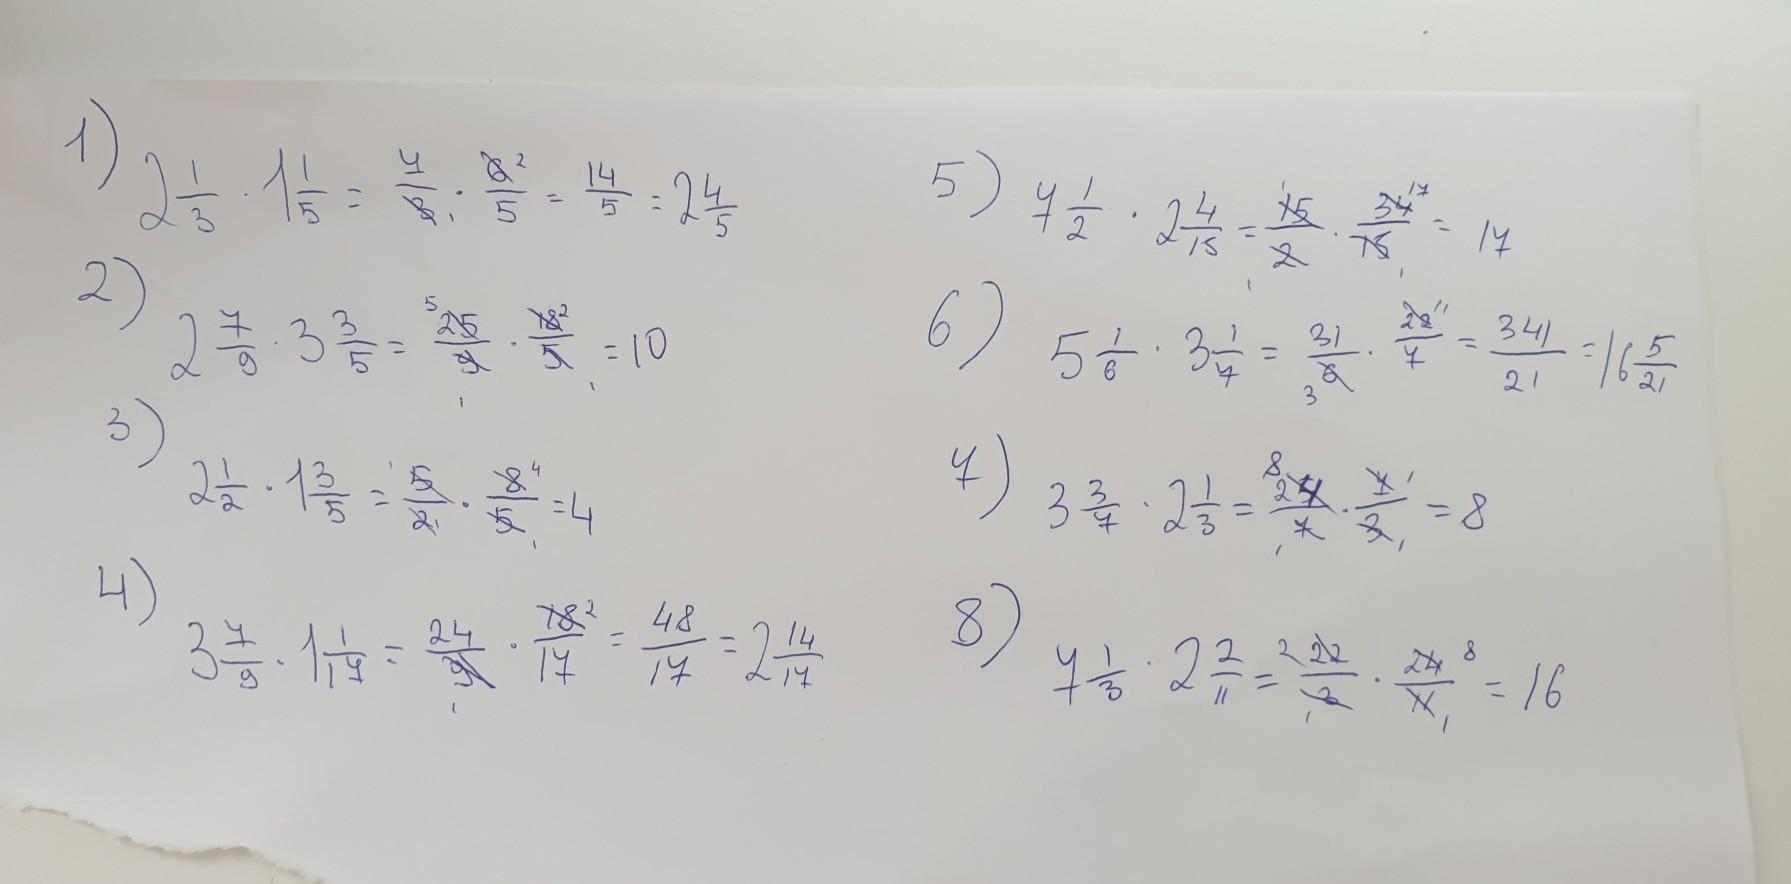 1) 2 1/3 · 1 1/5 = 7/3 1 · 6 2/5 = 14/5 = 2 4/5
2) 2 7/9 · 3 3/5 = 5 25/9 1 · 18 2/5 1 = 10
3) 2 1/2 · 1 3/5 = 1 5/2 1 · 8 4/5 1 = 4
4) 3 7/9 · 1 1/17 = 24/9 1 · 18 2/17 = 48/17 = 2 14/17
5) 7 1/2 · 2 4/15 = 1 15/2 1 · 34 17/15 1 = 17
6) 5 1/6 · 3 1/7 = 31/6 3 · 22 11/7 = 341/21 = 16 5/21
7) 3 3/7 · 2 1/3 = 8 24/7 1 · 7 1/3 1 = 8
8) 7 1/3 · 2 2/11 = 2 22/3 1 · 24 8/11 1 = 16